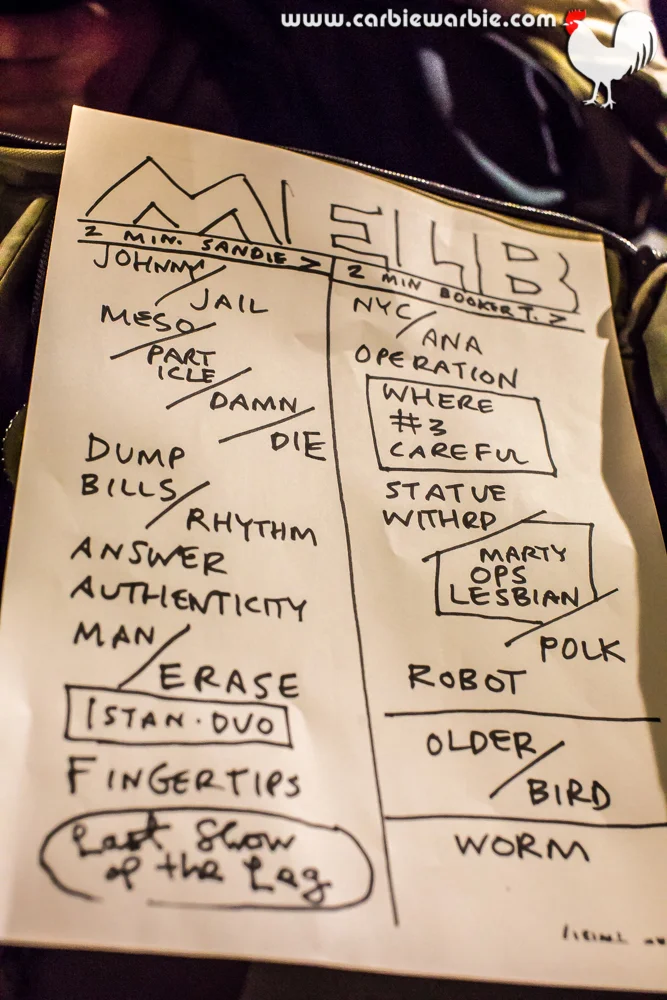 www.carbiewarbie.com
MELB
2 MIN. SANDIE >
JOHNNY/
JAIL
MESO/
PART
ICLE/
DAMN/
DIE
DUMP
BILLS/
RHYTHM
ANSWER
AUTHENTICITY
MAN/
ERASE
ISTAN·DUO
FINGERTIPS
Last Show
of the Leg
2 MIN BOOKER T. >
NYC/
ANA
OPERATION
WHERE
#3
CAREFUL
STATUE
WITHRD/
MARTY
OPS
LESBIAN/
POLK
ROBOT
OLDER/
BIRD
WORM